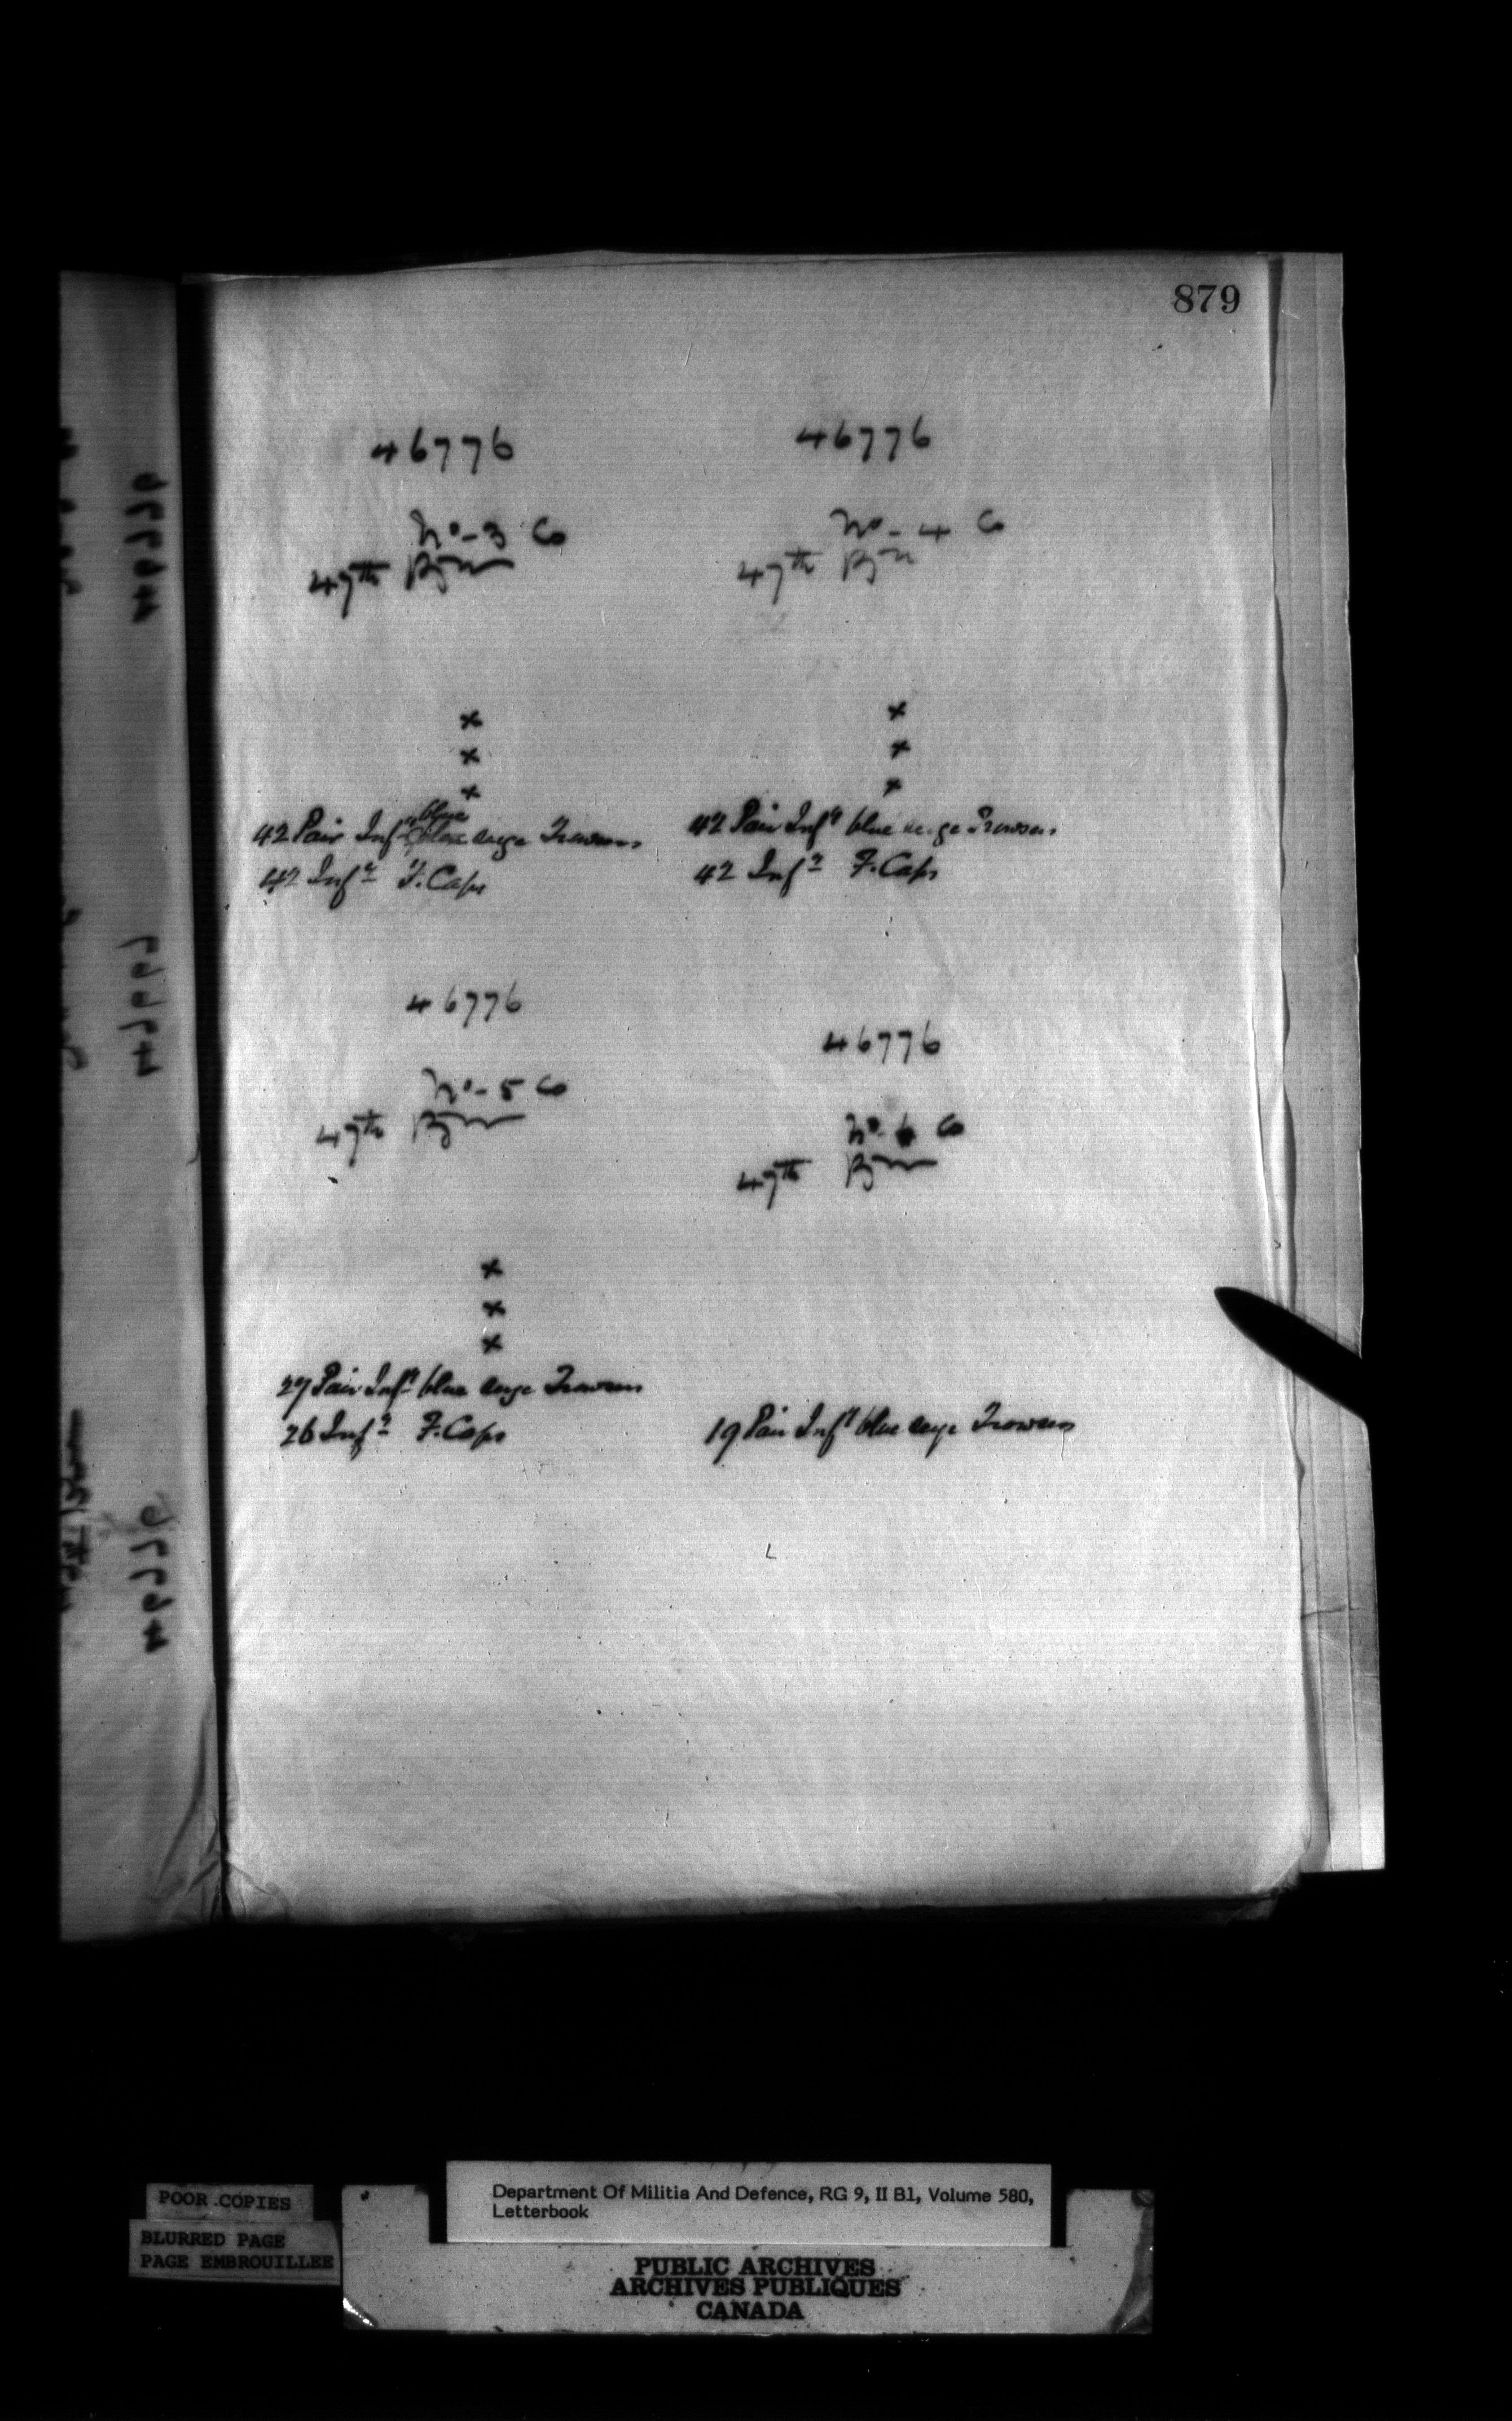 879
46776
No - 3 Co
47th Bn
x
x
x
blue
42 Pair Infy blue serge Trowsers
42 Infy F. Caps
46776
No - 4 Co
47th Bn
x
x
x
42 Pair Infy blue serge Trowsers
42 Infy F. Caps
46776
No - 5 Co
47th Bn
x
x
x
27 Pair Infy blue serge Trowsers
26 Infy F. Caps
46776
No - 6 Co
47th Bn
19 Pair Infy blue serge Trowsers
46776
POOR COPIES
BLURRED PAGE
PAGE EMBROUILLEE
Department Of Militia And Defence, RG 9, II B1, Volume 580,
Letterbook
PUBLIC ARCHIVES
ARCHIVES PUBLIQUES
CANADA